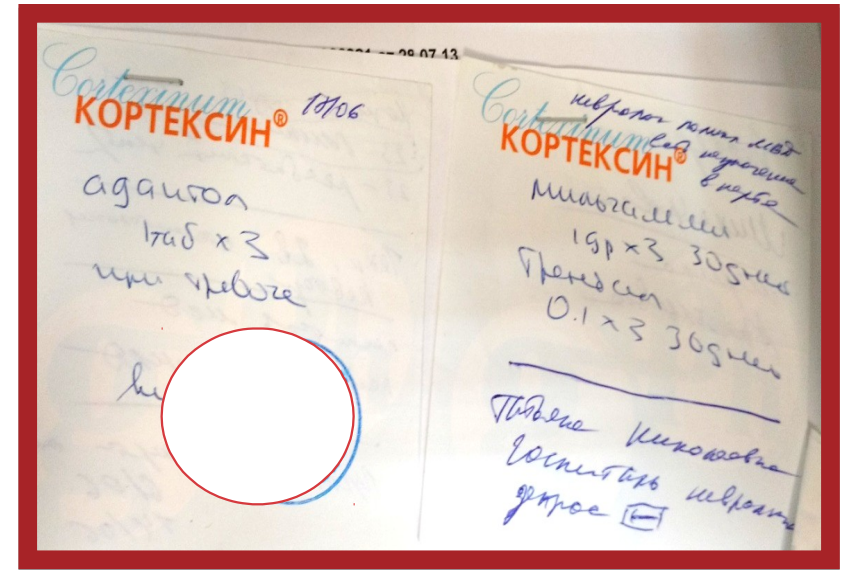 от 28.07.13
Cortexinum
КОРТЕКСИН®
17/06
адаптол
1таб х 3
при тревоге
Cortexinum
КОРТЕКСИН®
невролог
есть
в карте
мильгамма
1др х 3 30дней
Трентал
0.1 х 3 30дней
Татьяна Николаевна
Госпиталь невролог